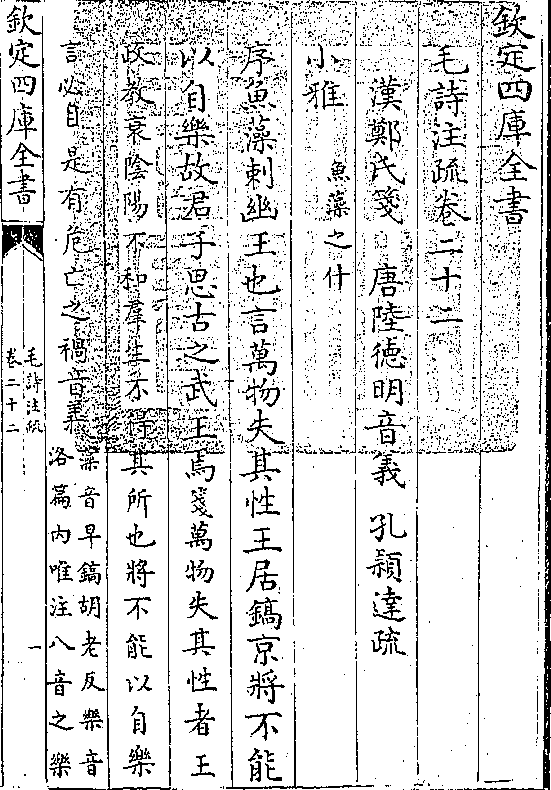 欽定四庫全書
毛詩注疏卷二十二
漢鄭氏箋　唐陸德明音義　孔穎達疏
小雅　魚藻之什
序魚藻刺幽王也言萬物失其性王居鎬京將不能
以自樂故君子思古之武王焉箋萬物失其性者王
政教衰陰陽不和羣生不得其所也將不能以自樂
言必自是有危亡之禍音義藻音早鎬胡老反樂音
洛篇內唯注八音之樂
欽定四庫全書
毛詩注疏
卷二十二
一